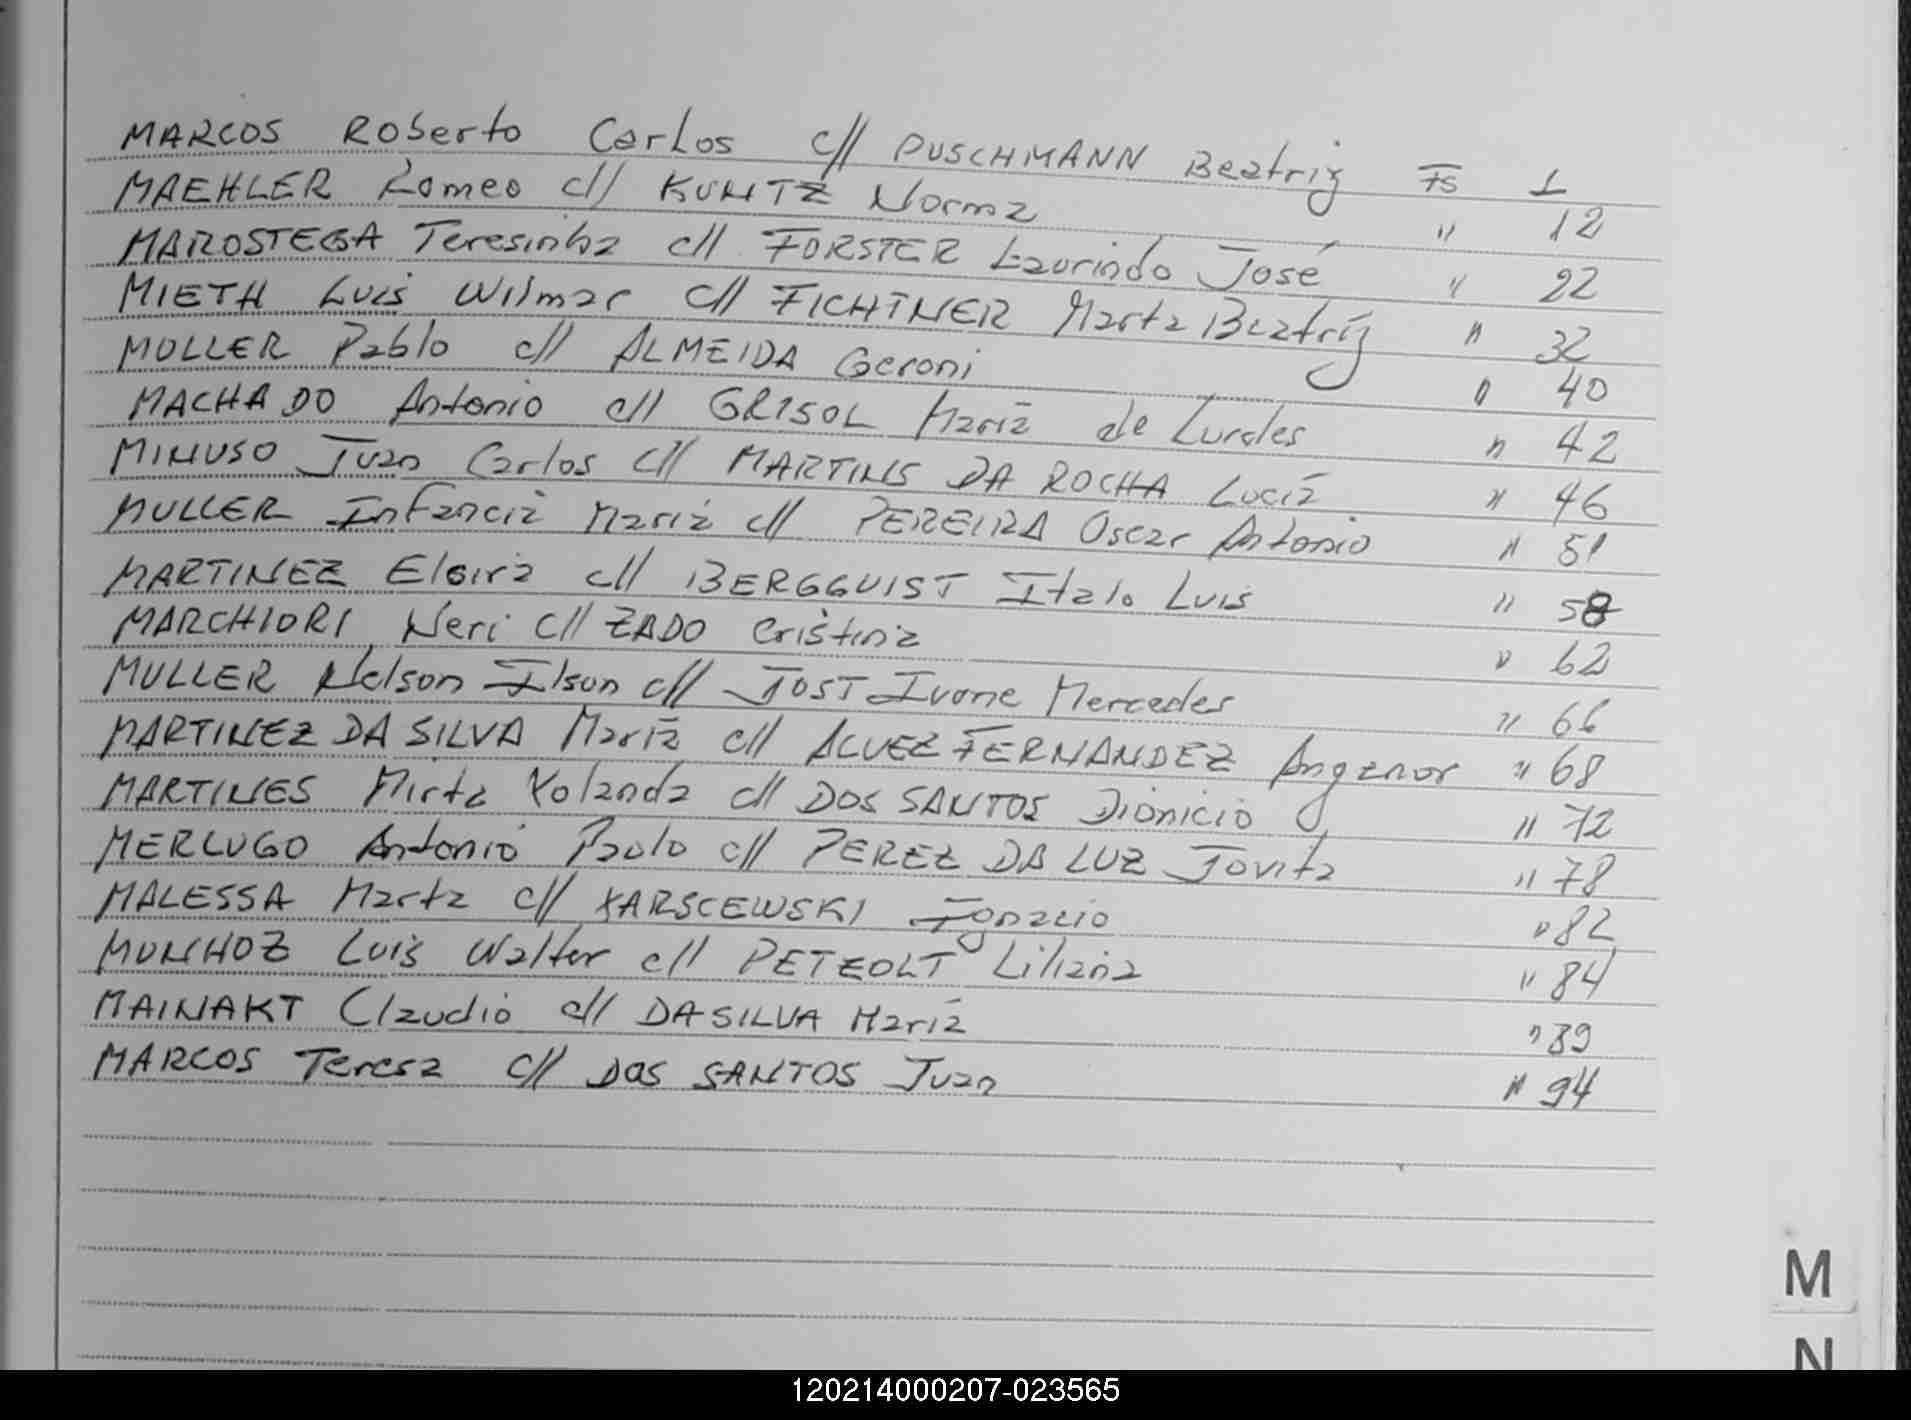 MARCOS Roberto Carlos c// PUSCHMANN Beatriz Fs 1
MAEHLER Romeo c// KUNTZ Norma " 12
MAROSTEGA Teresinha c// FORSTER Laurindo José " 22
MIETH Luis Wilmar c// FICHTNER Marta Beatriz " 32
MOLLER Pablo c// ALMEIDA Geroni " 40
MACHADO Antonio c// GRISOL Maria de Lurdes " 42
MINUSO Juan Carlos c// MARTINS DA ROCHA Lucia " 46
MULLER Infancia Maria c// PEREIRA Oscar Antonio " 51
MARTINEZ Eloira c// BERGGUIST Italo Luis " 58
MARCHIORI Neri c// ZADO Cristina " 62
MULLER Nelson Ilson c// JOST Ivone Mercedes " 66
MARTINEZ DA SILVA Maria c// ALVEZ FERNANDEZ Angenor " 68
MARTINES Mirta Yolanda c// DOS SANTOS Dionicio " 72
MERLUGO Antonio Paolo c// PEREZ DA LUZ Jovita " 78
MALESSA Marta c// YARSCEWSKI Ignacio " 82
MUNHOZ Luis Walter c// PETZOLT Liliana " 84
MAINAKT Claudio c// DA SILVA Maria " 89
MARCOS Teresa c// DOS SANTOS Juan " 94
M
N
120214000207-023565